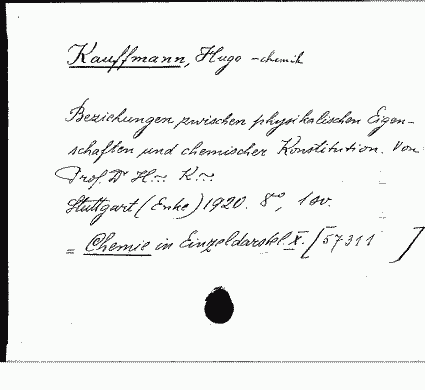 Kauffmann, Hugo - chemik
Beziehungen zwischen physikalischen Eigen-
schaften und chemischer Konstitution. Von
Prof. Dr H... K...
Stuttgart (Enke) 1920. 8°, 1 sv.
= Chemie in Einzeldarstel. X. [57311 ]